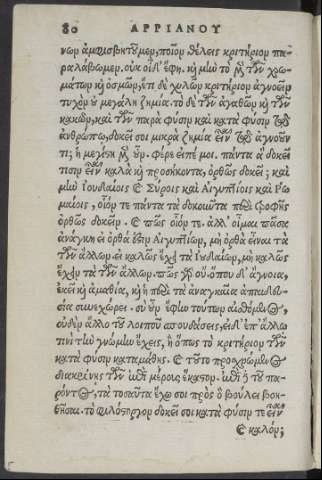 80 ΑΡΡΙΑΝΟΥ
νῶν ἀμφισβητοῦμεν, ποῖον θέλεις κριτήριον πα-
ραλάβωμεν. οὐκ οἶδ᾽ ἔφη. καὶ μὴν τὸ μὲν τῶν χρω-
μάτων καὶ ὀσμῶν, ἔτι δὲ χυλῶν κριτήριον ἀγνοεῖν
τυχὸν οὐ μεγάλη ζημία. τὸ δὲ τῶν ἀγαθῶν καὶ τῶν
κακῶν, καὶ τῶν παρὰ φύσιν καὶ κατὰ φύσιν τῷ
ἀνθρώπῳ, δοκεῖ σοι μικρὰ ζημία εἶναι τῷ ἀγνοοῦν
τι; ἡ μεγίστη μὲν οὖν. φέρε εἰπέ μοι. πάντα ἃ δοκεῖ
τισιν εἶναι καλὰ καὶ προσήκοντα, ὀρθῶς δοκεῖ; καὶ
μὴν ἰουδαίοις καὶ Σύροις καὶ Αἰγυπτίοις καὶ Ῥω
μαίοις, οἷόν τε πάντα τὰ δοκοῦντα περὶ τροφῆς
ὀρθῶς δοκεῖν. καὶ πῶς οἷόν τε. ἀλλ᾽ οἶμαι πᾶσα
ἀνάγκη εἰ ὀρθά ἐστιν Αἰγυπτίων, μὴ ὀρθὰ εἶναι τὰ
τῶν ἄλλων. εἰ καλῶς ἔχει τὰ ἰουδαίων, μὴ καλῶς
ἔχειν τὰ τῶν ἄλλων. πῶς γὰρ οὔ. ὅπου δ᾽ ἄγνοια,
ἐκεῖ καὶ ἀμαθία, καὶ ἡ περὶ τὰ ἀναγκαῖα ἀπαιδευ-
σία συνεχώρει. σὺ οὖν ἔφη τούτων αἰσθόμενος,
οὐδὲν ἄλλο τοῦ λοιποῦ σπουδάσεις, εἰ δ᾽ ἐπ᾽ ἄλλω
τινὶ τὴν γνώμην ἕχεις, ἢ ὅπως τὸ κριτήριον τῶν
κατὰ φύσιν καταμάθῃς. καὶ τούτο προσχρώμενος
διακρίνῃς τῶν ἐπὶ μέρους ἕκαστον. ἐπὶ δὲ τοῦ πα-
ρόντος, τὰ τοσαῦτα ἔχω σοι πρὸς ὃ βούλει βοη-
θῆσαι. τὸ φιλόστοργον δοκεῖ σοι κατὰ φύσιν τε εἶναι
καὶ καλόν;